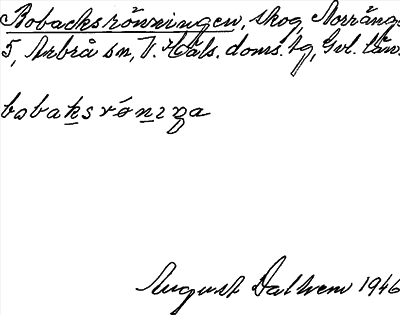 Bobacksrönningen, skog, Norränge
5, Arbrå sn, V. Häls. doms. tg, Gvl. län.
bobaksrónıŋa
August Dalhem 1946